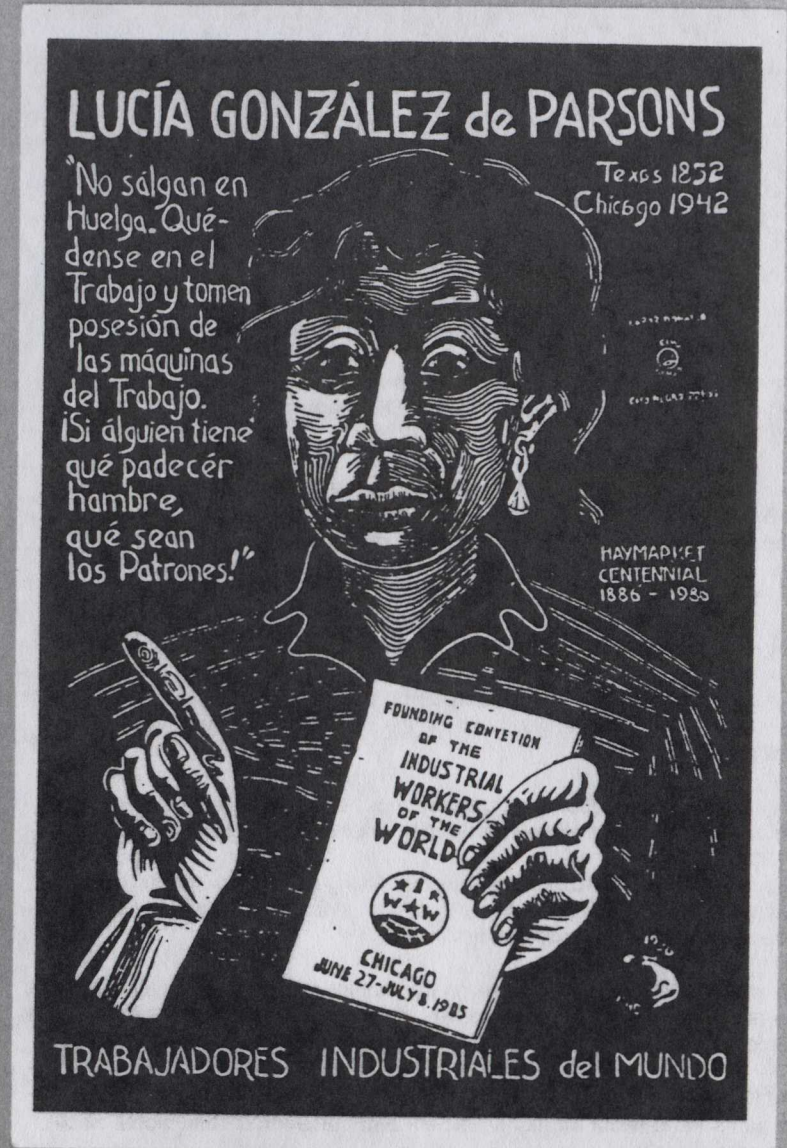 LUCÍA GONZÁLEZ de PARSONS
"No sálgan en
Huelga. Qué-
dense en el
Trabajo y tomen
posesión de
las máquinas
del Trabajo.
¡Si álguien tiene
qué padecér
hambre,
qué sean
los Patrones!"
Texas 1852
Chicago 1942
HAYMARKET
CENTENNIAL
1886 - 1986
FOUNDING CONVETION
OF THE
INDUSTRIAL
WORKERS
OF THE
WORLD
I
W W
CHICAGO
JUNE 27-JULY 8, 1985
TRABAJADORES INDUSTRIALES del MUNDO